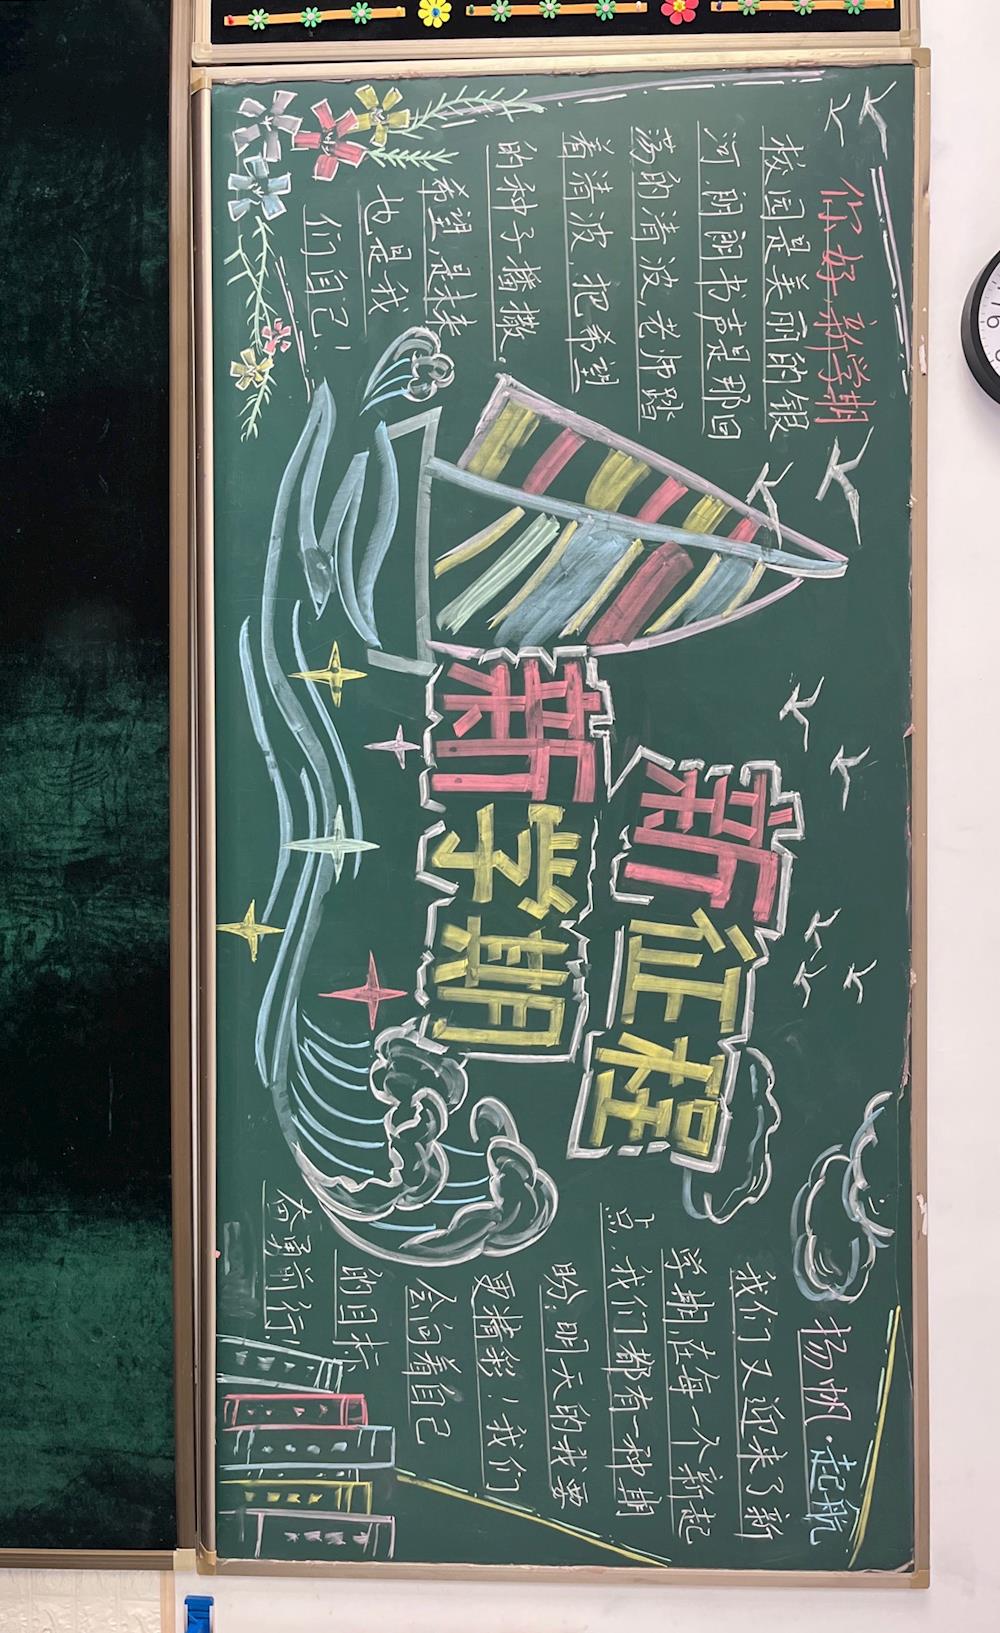 你好·新学期
校园是美丽的银
河，朗朗书声是那回
荡的清波，老师踏
着清波，把希望
的种子播撒。
希望是未来
也是我
们自己！
新征程
新学期
扬帆·起航
我们又迎来了新
学期，在每一个新起
点，我们都有一种期
盼：明天的我要
更精彩！我们
会向着自己
的目标
奋勇前行！
6